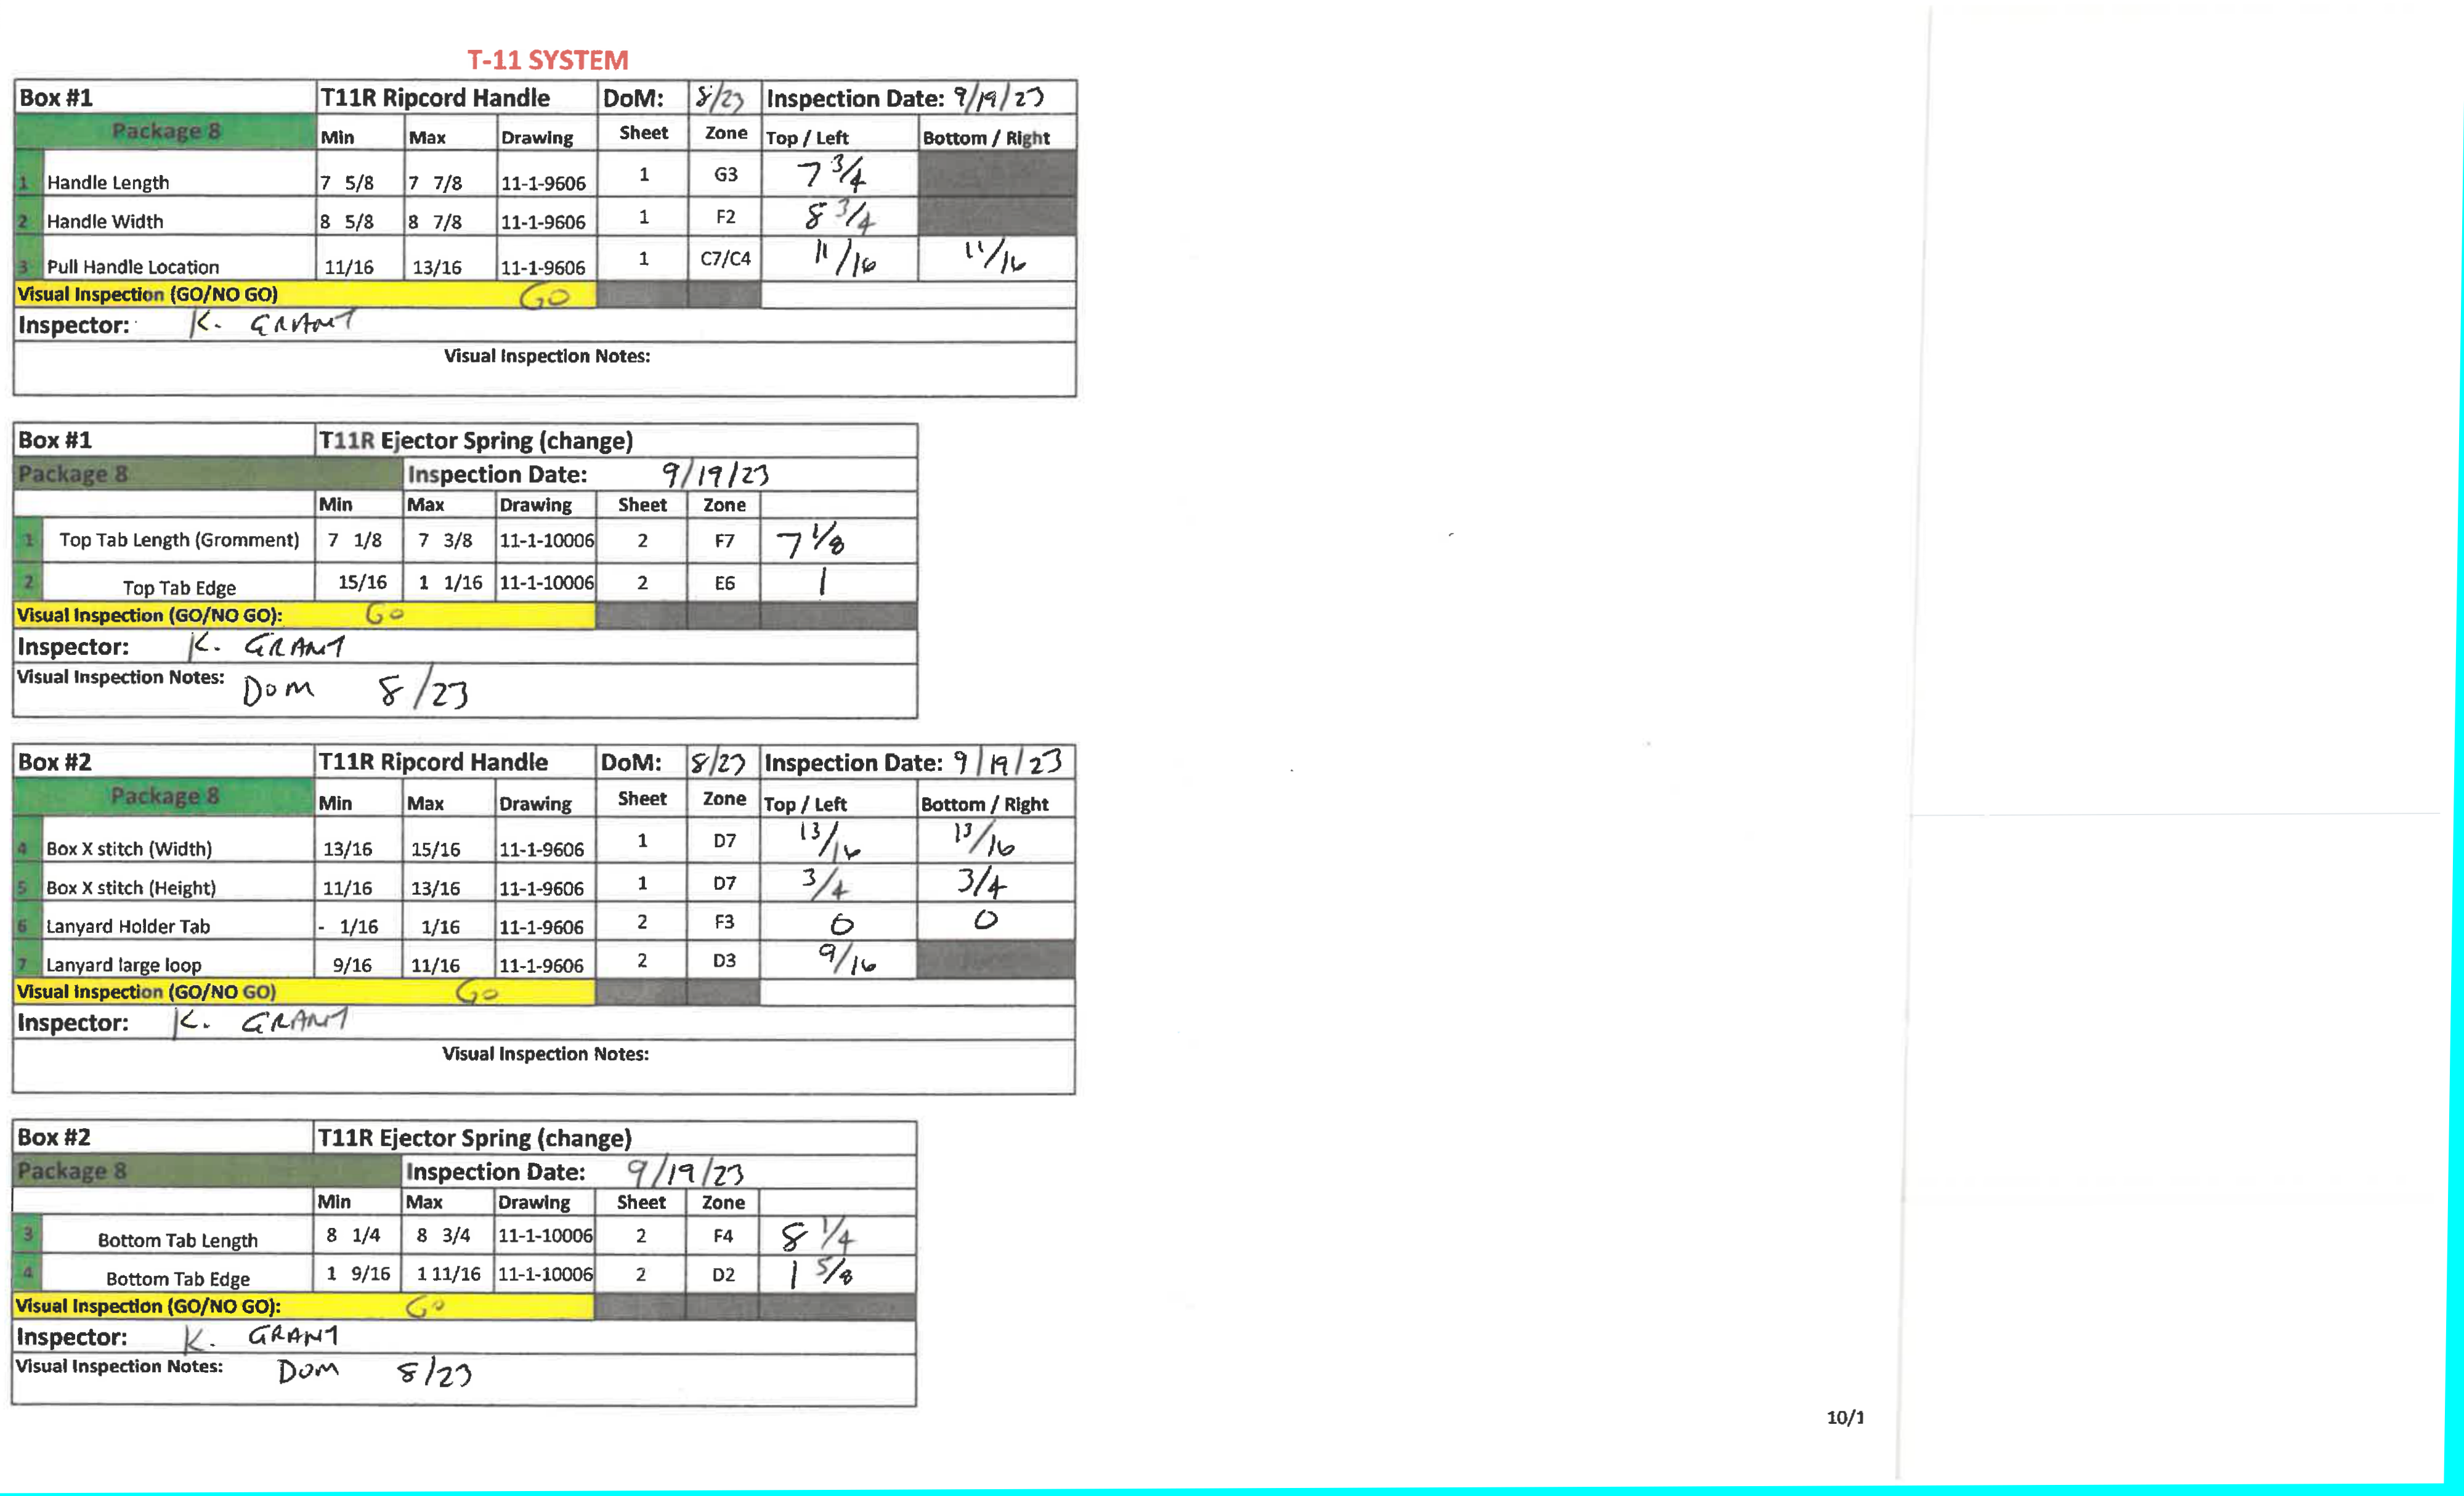 T-11 SYSTEM
Box #1 T11R Ripcord Handle DoM: 8/23 Inspection Date: 9/19/23
Package 8 Min Max Drawing Sheet Zone Top / Left Bottom / Right
1 Handle Length 7 5/8 7 7/8 11-1-9606 1 G3 7 3/4
2 Handle Width 8 5/8 8 7/8 11-1-9606 1 F2 8 3/4
3 Pull Handle Location 11/16 13/16 11-1-9606 1 C7/C4 11/16 11/16
Visual Inspection (GO/NO GO) GO
Inspector: K. GRANT
Visual Inspection Notes:
Box #1 T11R Ejector Spring (change)
Package 8 Inspection Date: 9/19/23
Min Max Drawing Sheet Zone
1 Top Tab Length (Gromment) 7 1/8 7 3/8 11-1-10006 2 F7 7 1/8
2 Top Tab Edge 15/16 1 1/16 11-1-10006 2 E6 1
Visual Inspection (GO/NO GO): GO
Inspector: K. GRANT
Visual Inspection Notes: DOM 8/23
Box #2 T11R Ripcord Handle DoM: 8/23 Inspection Date: 9/19/23
Package 8 Min Max Drawing Sheet Zone Top / Left Bottom / Right
4 Box X stitch (Width) 13/16 15/16 11-1-9606 1 D7 13/16 13/16
5 Box X stitch (Height) 11/16 13/16 11-1-9606 1 D7 3/4 3/4
6 Lanyard Holder Tab - 1/16 1/16 11-1-9606 2 F3 0 0
7 Lanyard large loop 9/16 11/16 11-1-9606 2 D3 9/16
Visual Inspection (GO/NO GO) GO
Inspector: K. GRANT
Visual Inspection Notes:
Box #2 T11R Ejector Spring (change)
Package 8 Inspection Date: 9/19/23
Min Max Drawing Sheet Zone
3 Bottom Tab Length 8 1/4 8 3/4 11-1-10006 2 F4 8 1/4
4 Bottom Tab Edge 1 9/16 1 11/16 11-1-10006 2 D2 1 5/8
Visual Inspection (GO/NO GO): GO
Inspector: K. GRANT
Visual Inspection Notes: DOM 8/23
10/1